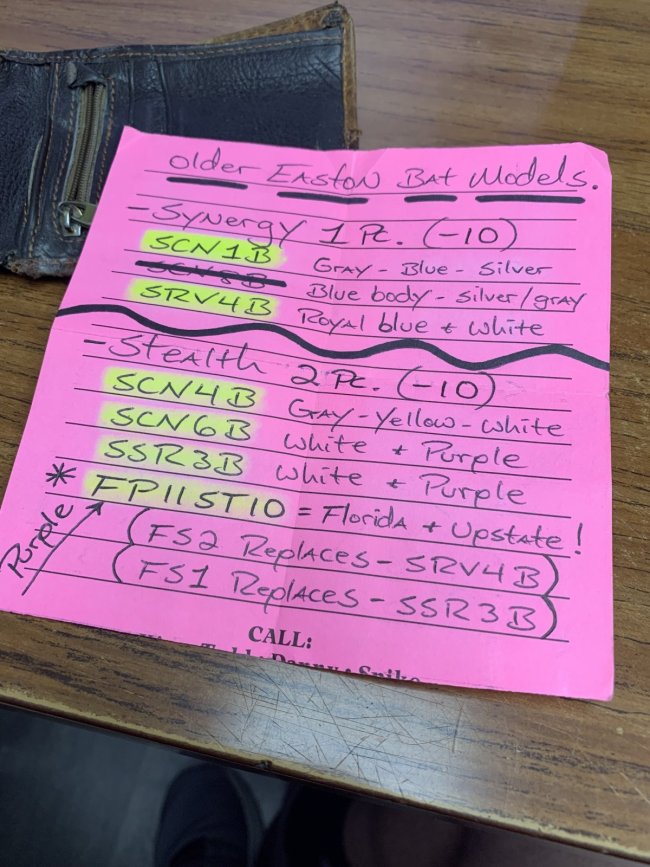 Older Easton Bat Models.
- Synergy 1 Pc. (-10)
SCN1B Gray - Blue - Silver
Blue body - Silver/gray
SRV4B Royal blue + White
- Stealth 2 Pc. (-10)
SCN4B Gray - Yellow - White
SCN6B White + Purple
SSR3B White + Purple
* FP11ST10 = Florida + Upstate!
Purple
(FS2 Replaces - SRV4B)
(FS1 Replaces - SSR3B)
CALL: